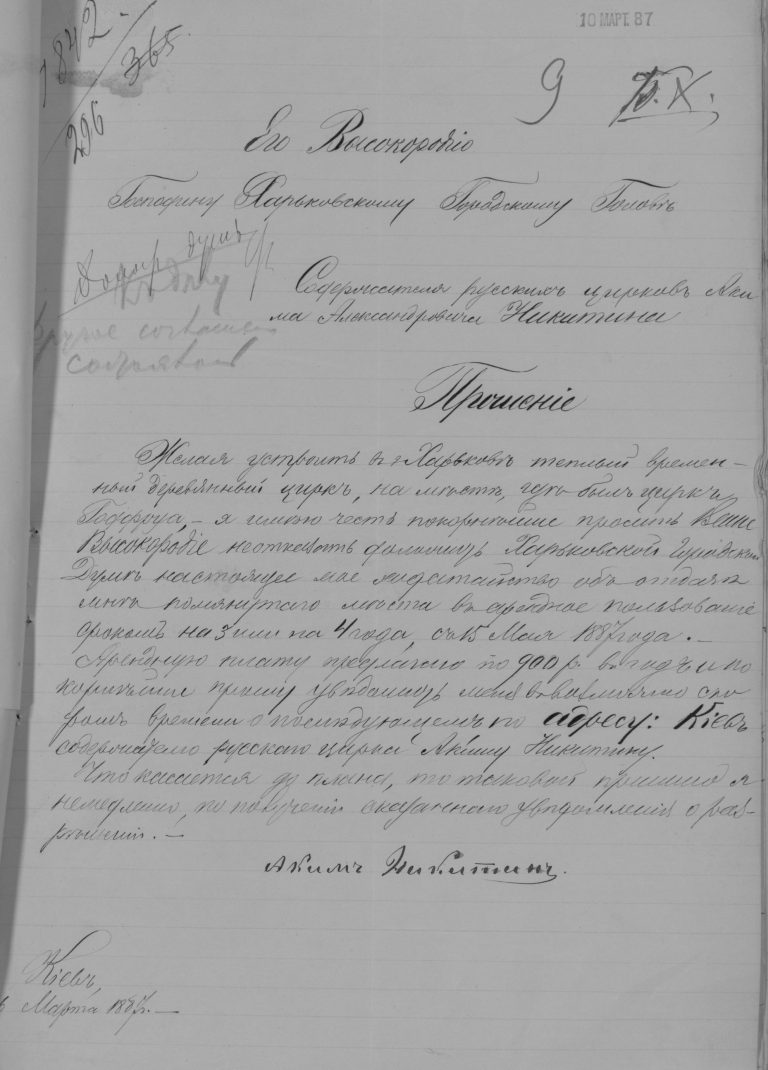 10 МАРТ. 87
1842
365.
296
9
Его Высокородію
Господину Харьковскому Городскому Головѣ
Содержателя русскихъ цирковъ Аки
ма Александровича Никитина
Прошеніе
Желая устроить въ г. Харьковѣ теплый времен-
ный деревянный циркъ, на мѣстѣ, гдѣ былъ циркъ
Годфруа, – я имѣю честь покорнѣйше просить Ваше
Высокородіе неотказать доложить Харьковской Городской
Думѣ настоящее мое ходатайство объ отдачѣ
мнѣ помянутаго мѣста въ арендное пользованіе
срокомъ на 3 или на 4 года, съ 15 Мая 1887 года. –
Арендную плату предлагаю по 900 р. въ годъ и по
корнѣйше прошу увѣдомить меня въ возможно ско
ромъ времени о послѣдующемъ по адресу: Кіевъ
содержателю русскаго цирка Акиму Никитину.
Что касается до плана, то таковой пришлю я
немедленно, по полученіи сказаннаго увѣдомленія о раз-
рѣшеніи. –
Акимъ Никитинъ.
Кіевъ,
Марта 1887 г. –